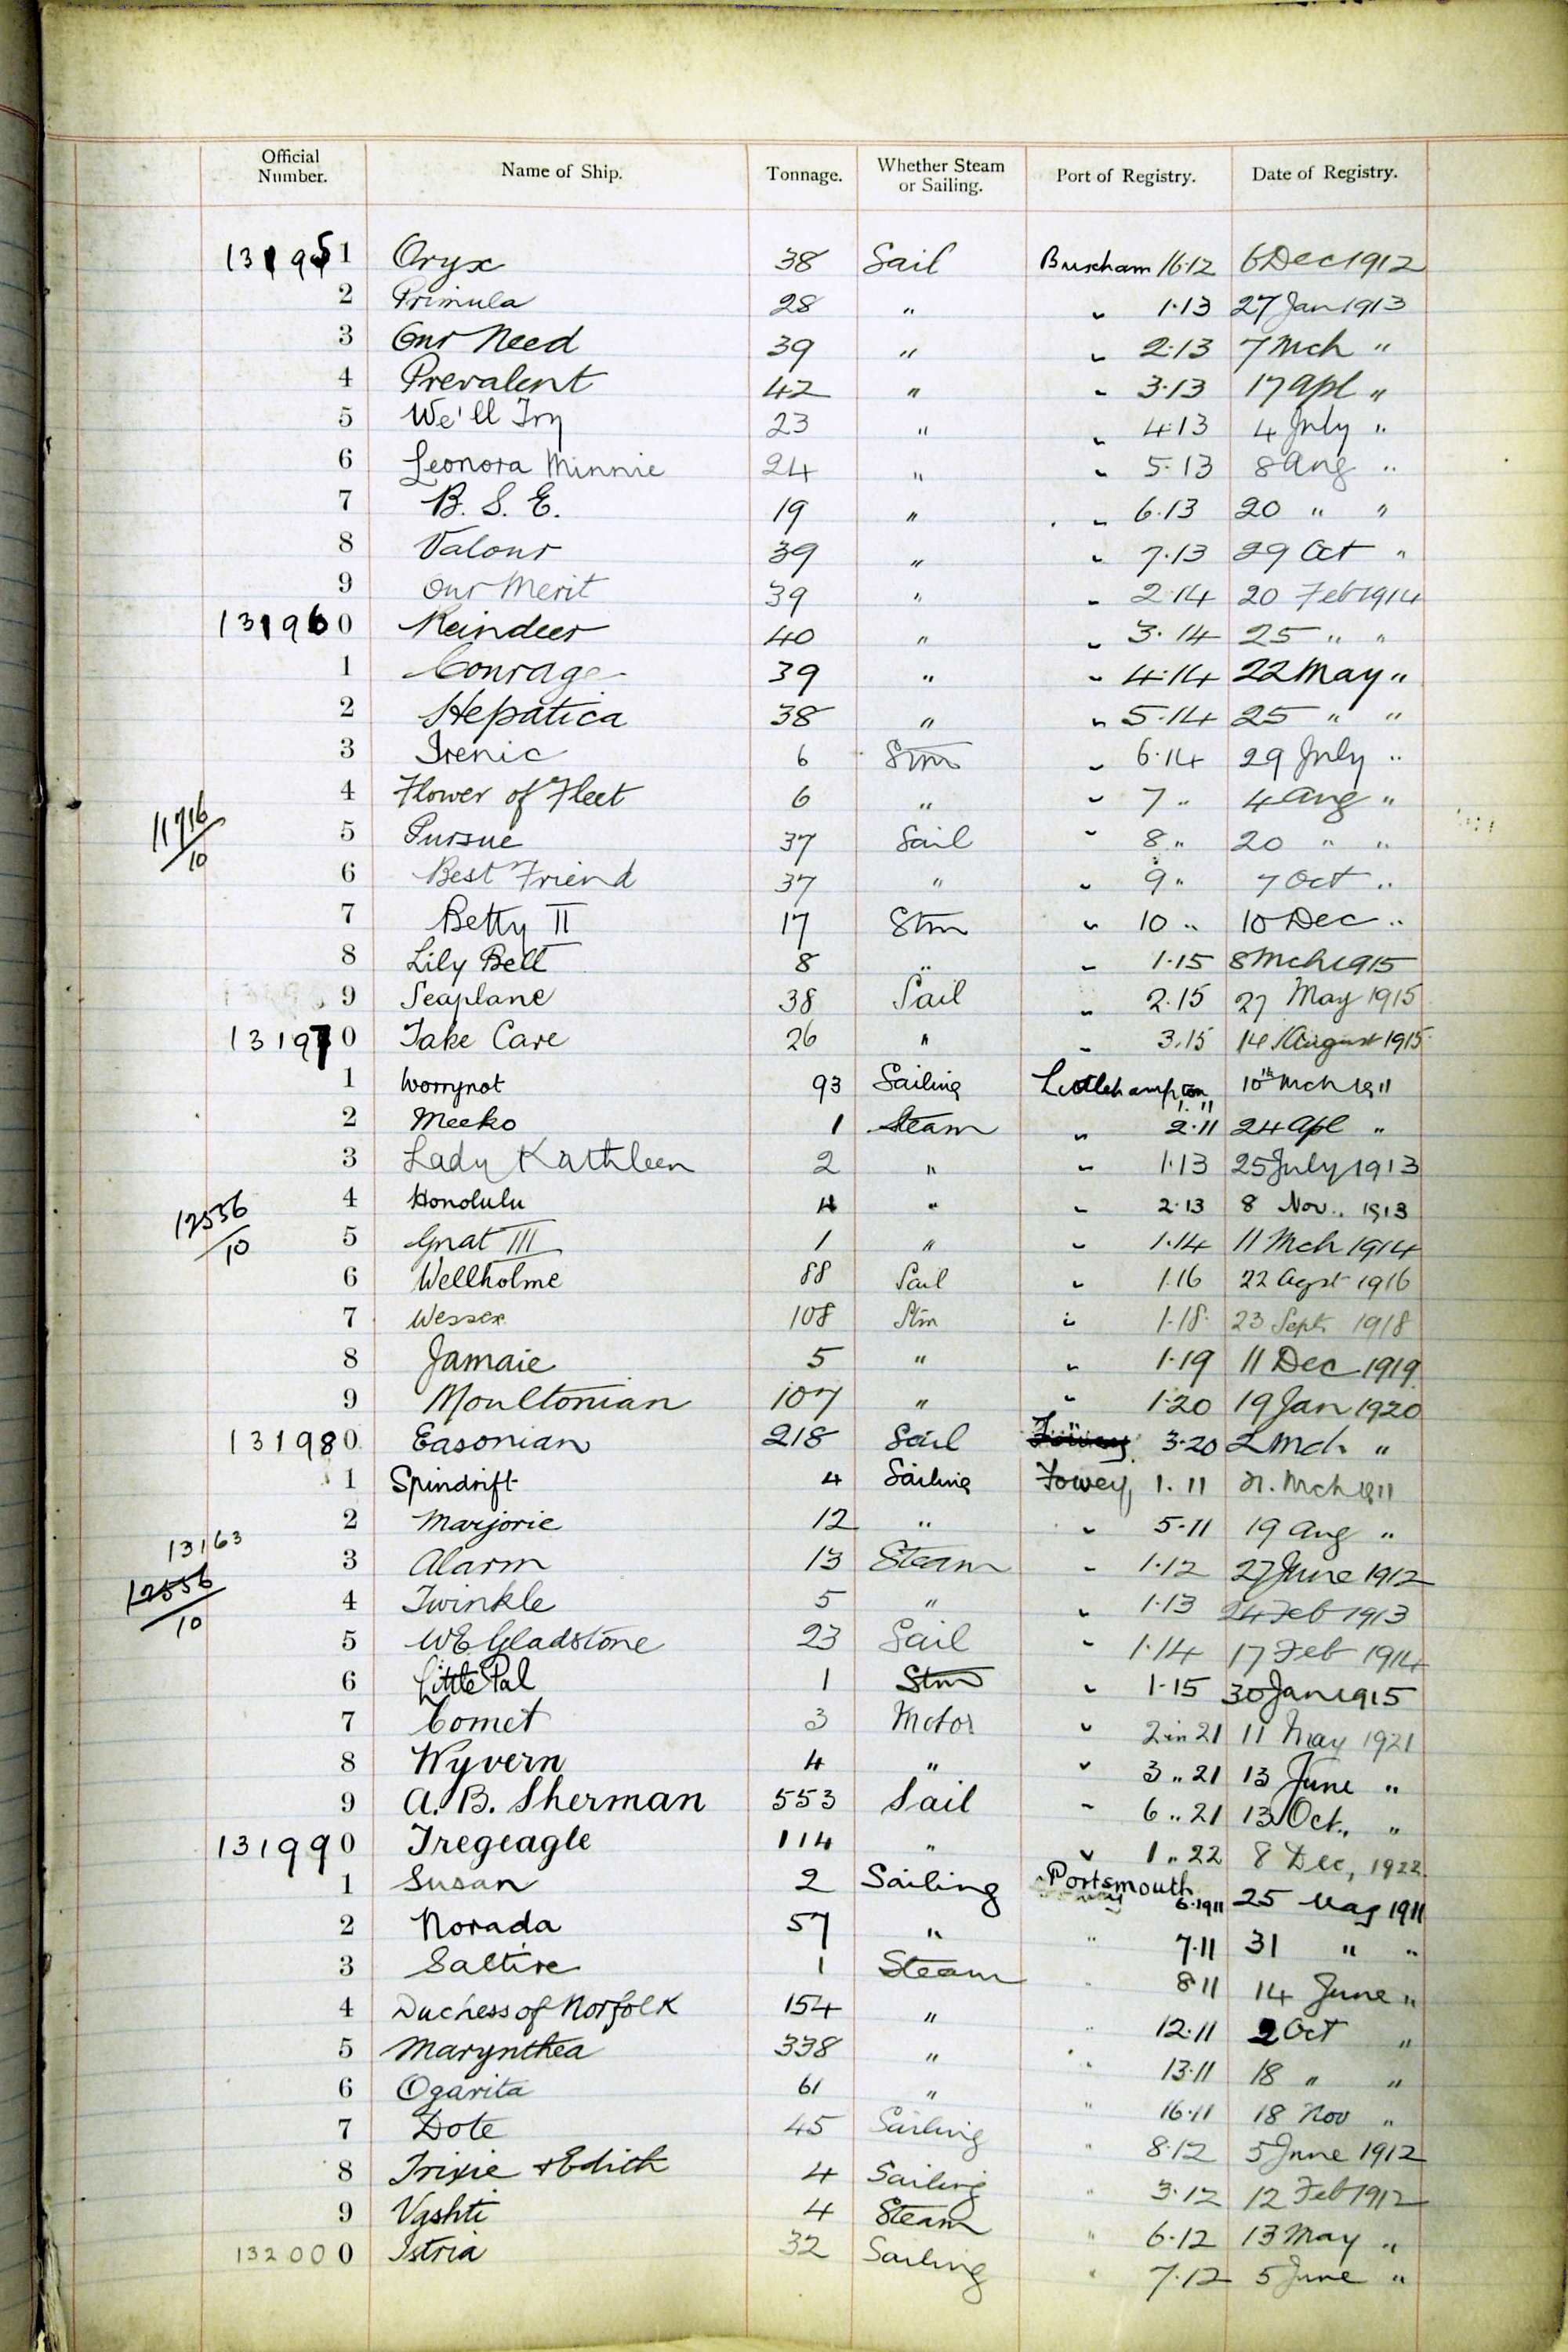 Official Number. Name of Ship. Tonnage. Whether Steam or Sailing. Port of Registry. Date of Registry.
131951 Oryx 38 Sail Brixham 16.12 6 Dec 1912
2 Primula 28 " " 1.13 27 Jan 1913
3 Our Need 39 " " 2.13 7 Mch "
4 Prevalent 42 " " 3.13 17 Apl "
5 We'll Try 23 " " 4.13 4 July "
6 Leonora Minnie 24 " " 5.13 8 Aug "
7 B. S. E. 19 " " 6.13 20 " "
8 Valour 39 " " 7.13 29 Oct "
9 Our Merit 39 " " 2.14 20 Feb 1914
131960 Reindeer 40 " " 3.14 25 " "
1 Courage 39 " " 4.14 22 May "
2 Hepatica 38 " " 5.14 25 " "
3 Irenic 6 Stm " 6.14 29 July "
4 Flower of Fleet 6 " " 7 " 4 Aug "
11716/10
5 Pursue 37 Sail " 8 " 20 " "
6 Best Friend 37 " " 9 " 7 Oct "
7 Betty II 17 Stm " 10 " 10 Dec "
8 Lily Bell 8 " " 1.15 8 Mch 1915
9 Seaplane 38 Sail " 2.15 27 May 1915
131970 Take Care 26 " " 3.15 14 August 1915
1 Worrynot 93 Sailing Littlehampton 1.11 10th Mch 1911
2 Meeko 1 Steam " 2.11 24 Apl "
3 Lady Kathleen 2 " " 1.13 25 July 1913
4 Honolulu 4 " " 2.13 8 Nov. 1913
12556/10
5 Gnat III 1 " " 1.14 11 Mch 1914
6 Wellholme 88 Sail " 1.16 22 Agst 1916
7 Wessex 108 Stm " 1.18 23 Sept. 1918
8 Jamaie 5 " " 1.19 11 Dec 1919
9 Moultonian 107 " " 1.20 19 Jan 1920
131980 Easonian 218 Sail Fowey 3.20 2 Mch "
1 Spindrift 4 Sailing Fowey, 1.11 21. Mch 1911
2 Marjorie 12 " " 5.11 19 Aug "
13163
3 Alarm 13 Steam " 1.12 27 June 1912
12556/10
4 Twinkle 5 " " 1.13 24 Feb 1913
5 WE Gladstone 23 Sail " 1.14 17 Feb 1914
6 Little Pal 1 Stm " 1.15 30 Jan 1915
7 Comet 3 Motor " 2 in 21 11 May 1921
8 Wyvern 4 " " 3 " 21 13 June "
9 A. B. Sherman 553 Sail " 6 " 21 13 Oct. "
131990 Tregeagle 114 " " 1 " 22 8 Dec, 1922
1 Susan 2 Sailing Portsmouth 6.1911 25 May 1911
2 Norada 57 " " 7.11 31 " "
3 Saltire 1 Steam " 8.11 14 June "
4 Duchess of Norfolk 154 " " 12.11 2 Oct "
5 Marynthea 338 " " 13.11 18 " "
6 Ogarita 61 " " 16.11 18 Nov "
7 Dote 45 Sailing " 8.12 5 June 1912
8 Trixie & Edith 4 Sailing " 3.12 12 Feb 1912
9 Vashti 4 Steam " 6.12 13 May "
132000 Istria 32 Sailing " 7.12 5 June "